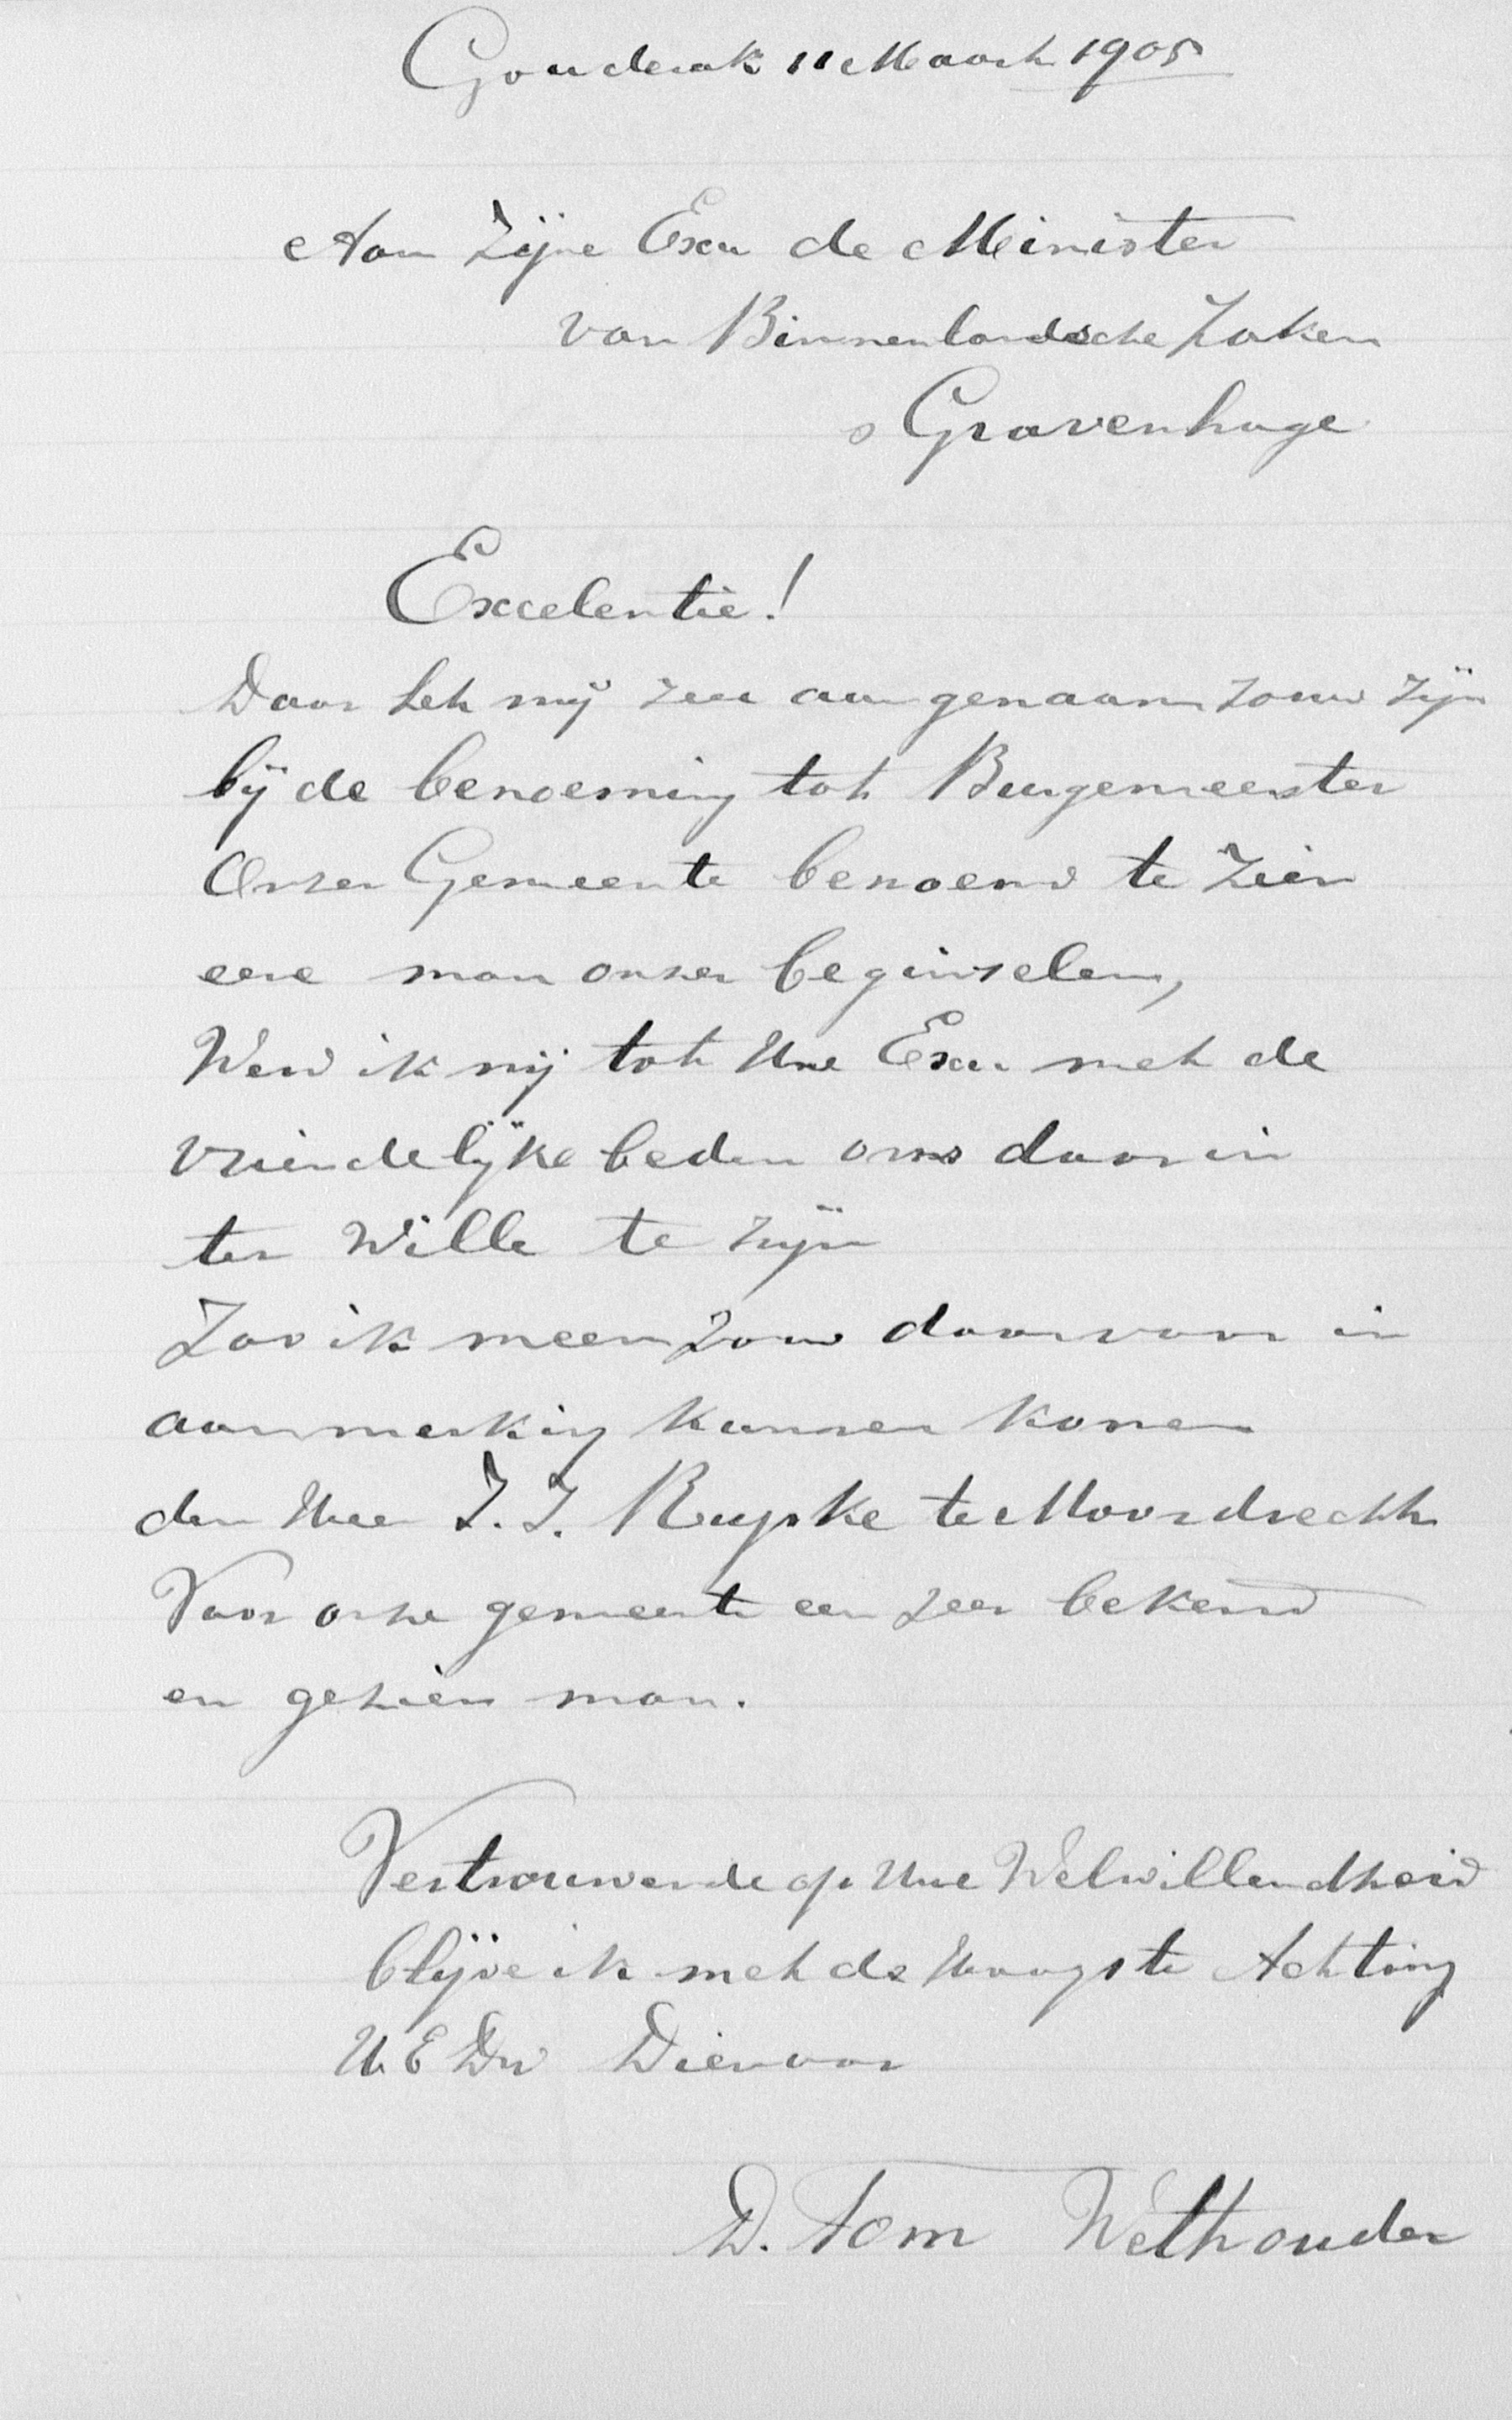 Gouderak 11 Maart 1905
Aan Zijne Exce de Minister
van Binnenlandsche Zaken
s Gravenhage
Excelentie!
Daar het mij zeer aangenaam zouw zijn
bij de benoeming tot Burgemeester
Onzer Gemeente benoemd te zien
eene man onzer beginselen,
Wend ik mij tot Uwe Exce met de
vriendelijke beden ons daar in
ter Wille te zijn
Zoo ik meen zouw daarvoor in
aanmerking kunnen komen
den Heer J. J. Rupke te Moordrecht
Voor onze gemeente een zeer bekend
en gezien man.
Vertrouwende op Uwe Welwillendheid
blijve ik met de Hoogste Achting
U. E Dw Dienaar
D. Tom Wethouder